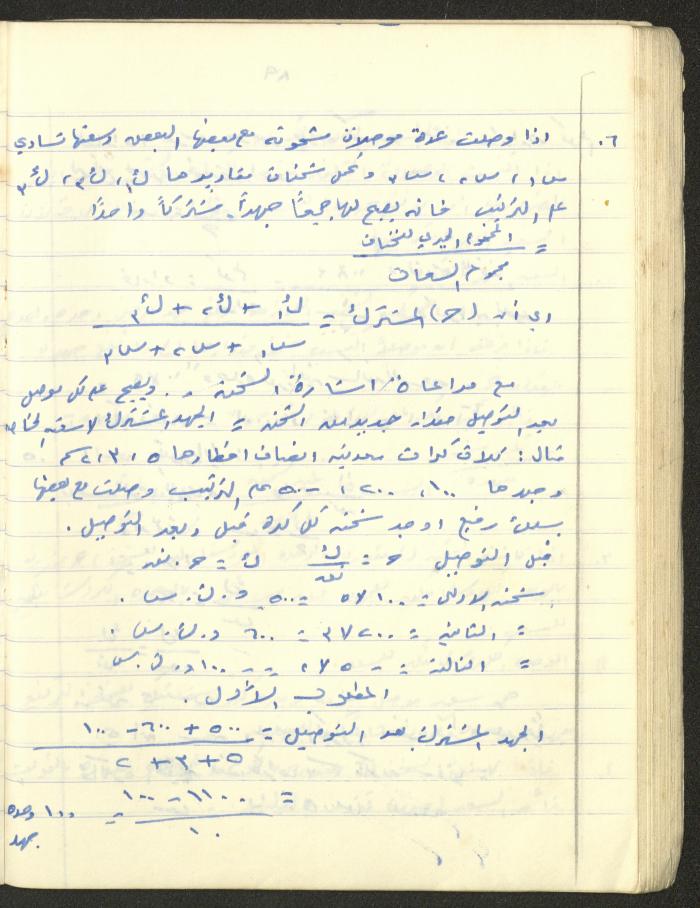 ٦. اذا وصلت عدة موصلات مشحونه مع بعضها البعض وسعتها تساوي
س١، س٢، س٣ وتحمل شحنات مقاديرها ك١، ك٢، ك٣
على الترتيب فانه يصبح لها جميعًا جهداً مشتركاً واحدًا
= المجموع الجبري للشحنات
مجموع السعات
اي أن (ج) المشترك = ك١ + ك٢ + ك٣
س١ + س٢ + س٣
مع مراعاة اشارة الشحنة . ويصبح على كل موصل
بعد التوصيل مقدار جديد من الشحنه = الجهد المشترك × سعته الخاصه
مثال : ثلاث كرات معدنيه انصاف اقطارها ٥، ٣، ٢ سم
وجهدها ١٠٠، ٢٠٠، -٥٠ على الترتيب وصلت مع بعضها
بسلك رفيع اوجد شحنة كل كره قبل وبعد التوصيل .
قبل التوصيل ج = ك/نق ك = ج . نق
شحنه الاولى = ١٠٠×٥ = ٥٠٠ و.ك.س .
= الثانيه = ٢٠٠×٣ = ٦٠٠ و.ك.س .
= الثالثه = -٥٠×٢ = -١٠٠ و.ك.س
المطلوب الأول .
الجهد المشترك بعد التوصيل = ٥٠٠ + ٦٠٠ - ١٠٠
٥ + ٣ + ٢
= ١١٠٠ - ١٠٠ = ١٠٠ وحده
١٠ جهد